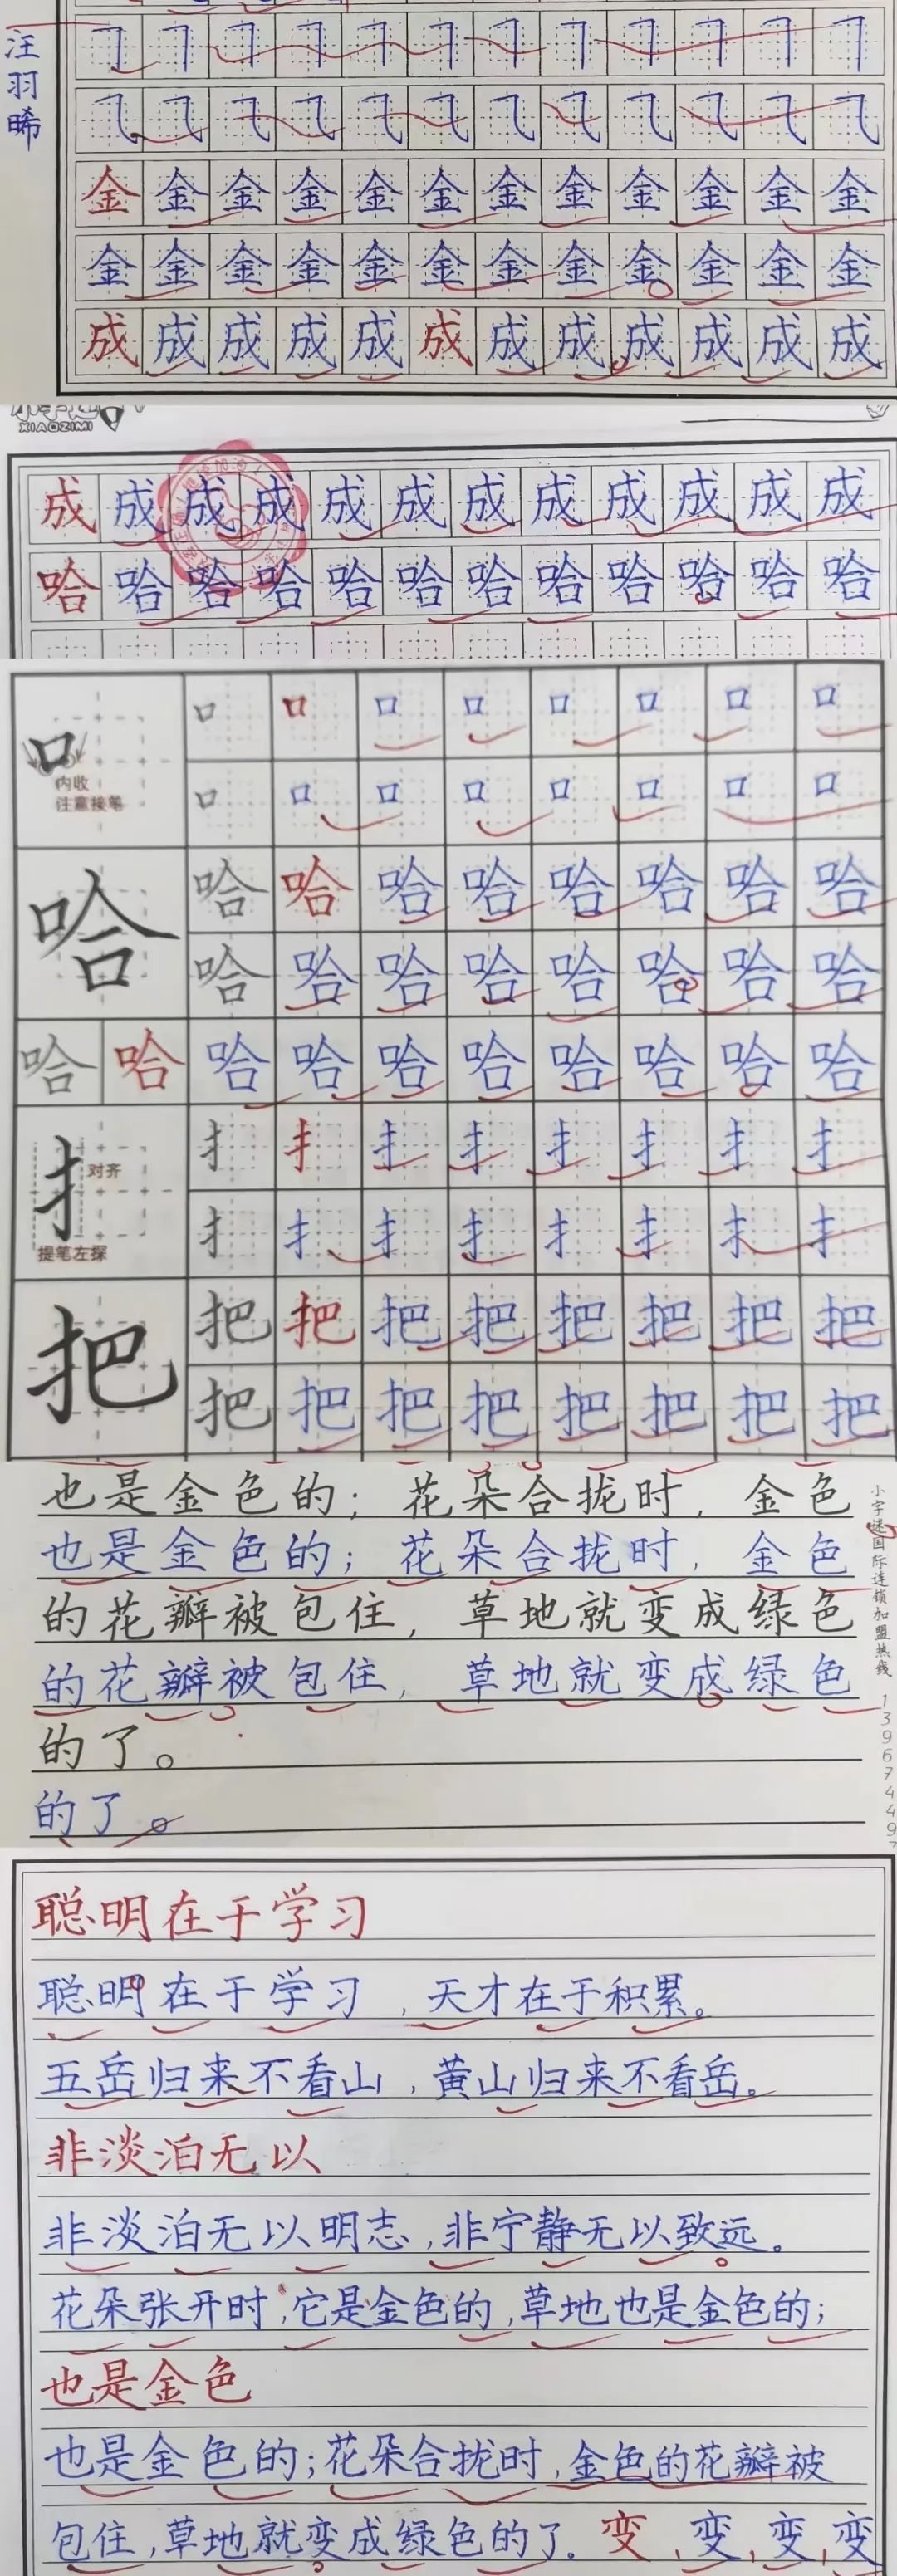 汪羽晞
金金金金金金金金金金金金
金金金金金金金金金金金金
成成成成成成成成成成成成
XIAOZIMI
成成成成成成成成成成成成
哈哈哈哈哈哈哈哈哈哈哈哈
口口口口口口口口口
内收
注意接笔
口口口口口口口口
哈哈哈哈哈哈哈哈哈
哈哈哈哈哈哈哈哈
哈哈哈哈哈哈哈哈哈哈
扌扌扌扌扌扌扌扌扌
对齐
提笔左探
扌扌扌扌扌扌扌扌
把把把把把把把把把
把把把把把把把把
也是金色的；花朵合拢时，金色
也是金色的；花朵合拢时，金色
的花瓣被包住，草地就变成绿色
的花瓣被包住，草地就变成绿色
的了。
的了。
小字迷国际连锁加盟热线 139674497
聪明在于学习
聪明在于学习，天才在于积累。
五岳归来不看山，黄山归来不看岳。
非淡泊无以
非淡泊无以明志，非宁静无以致远。
花朵张开时，它是金色的，草地也是金色的；
也是金色
也是金色的；花朵合拢时，金色的花瓣被
包住，草地就变成绿色的了。变，变，变，变